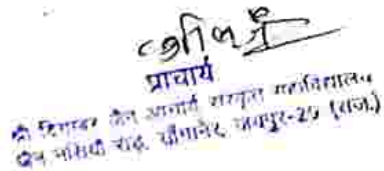 प्राचार्य
श्री दिगम्बर जैन आचार्य संस्कृत महाविद्यालय
जैन नसियां रोड़, सांगानेर, जयपुर-29 (राज.)